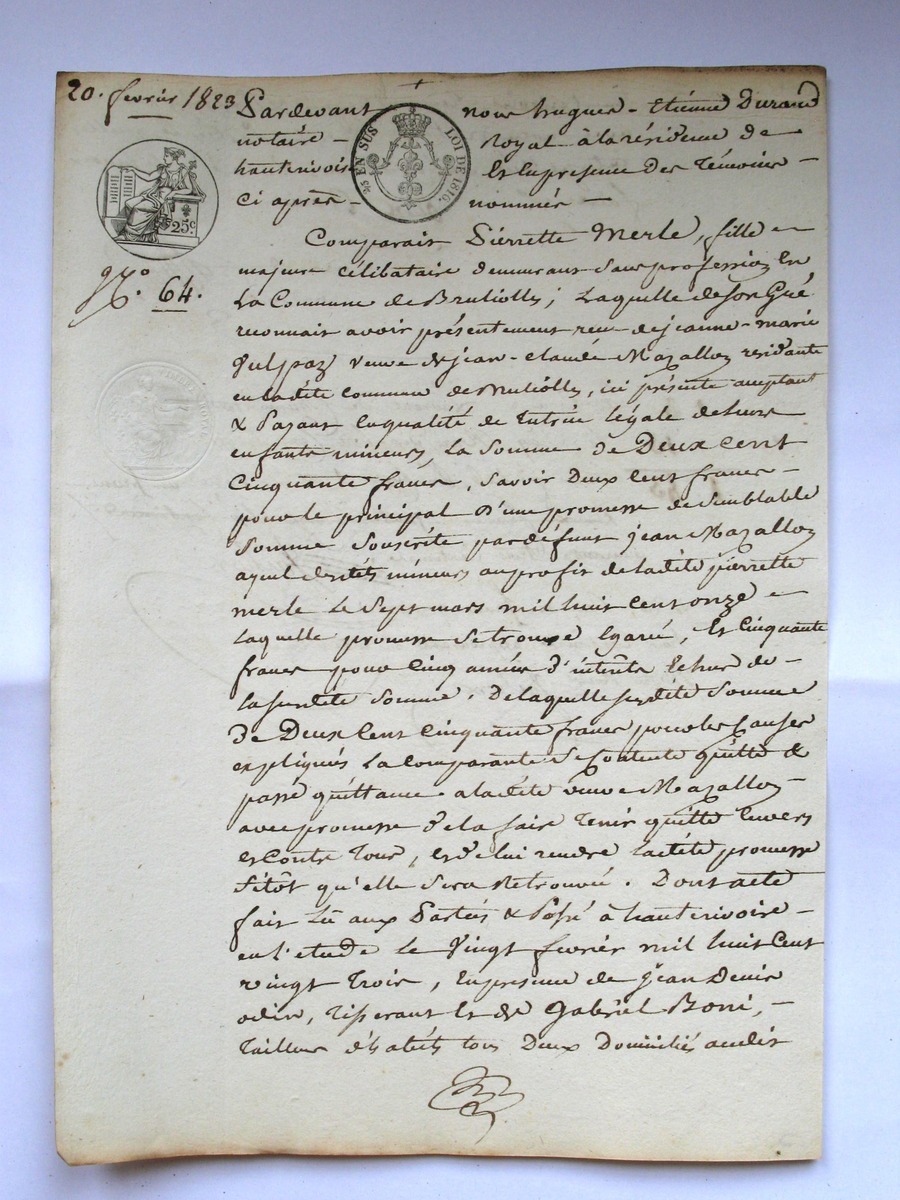 20. fevrier 1823
Pardevant nous hugues-Etienne Durand
notaire - Royal à la résidence de
hauterivoire Et En presence des Témoins -
Ci après - nommés -
25 EN SUS LOI DE 1816.
25c
No. 64.
Comparait Pierrette Merle, fille
majeure célibataire demeurant Sans profession En
La Commune de Brulliolles; Laquelle de Son Gré
reconnait avoir présentement reçu de jeanne-marie
veuve de jean-claude Mazallon residante
en ladite commune de Brulliolles, ici présente acceptant
& Payant En qualité de Tutrice légale de Leurs
enfants mineurs, La Somme de Deux cent
Cinquante francs, Savoir Deux Cent francs -
pour le principal d'une promesse de Semblable
Somme Souscrite par défunt jean Mazallon
ayeul desdits mineurs au profit de ladite pierrette
merle Le Sept mars mil huit Cent onze
Laquelle promesse Se trouve Egarée, Et Cinquante
francs pour Cinq années d'intérêts Echus de -
la susdite Somme. De laquelle susdite Somme
de Deux Cent Cinquante francs pour les Causes
expliquées La Comparante Se Contente quitte &
passe quittance à ladite veuve Mazallon -
avec promesse de la faire Tenir quitte Envers
et Contre Tous, et de lui rendre ladite promesse
Sitôt qu'elle Sera Retrouvée. Dont acte
fait Lu aux Parties & Passé à hauterivoire -
en l'etude Le Vingt fevrier mil huit Cent
vingt Trois, En presence de Jean Denis
odin, Tisserant Et de Gabriel Boni, -
Tailleur d'habits tous Deux Domiciliés audit